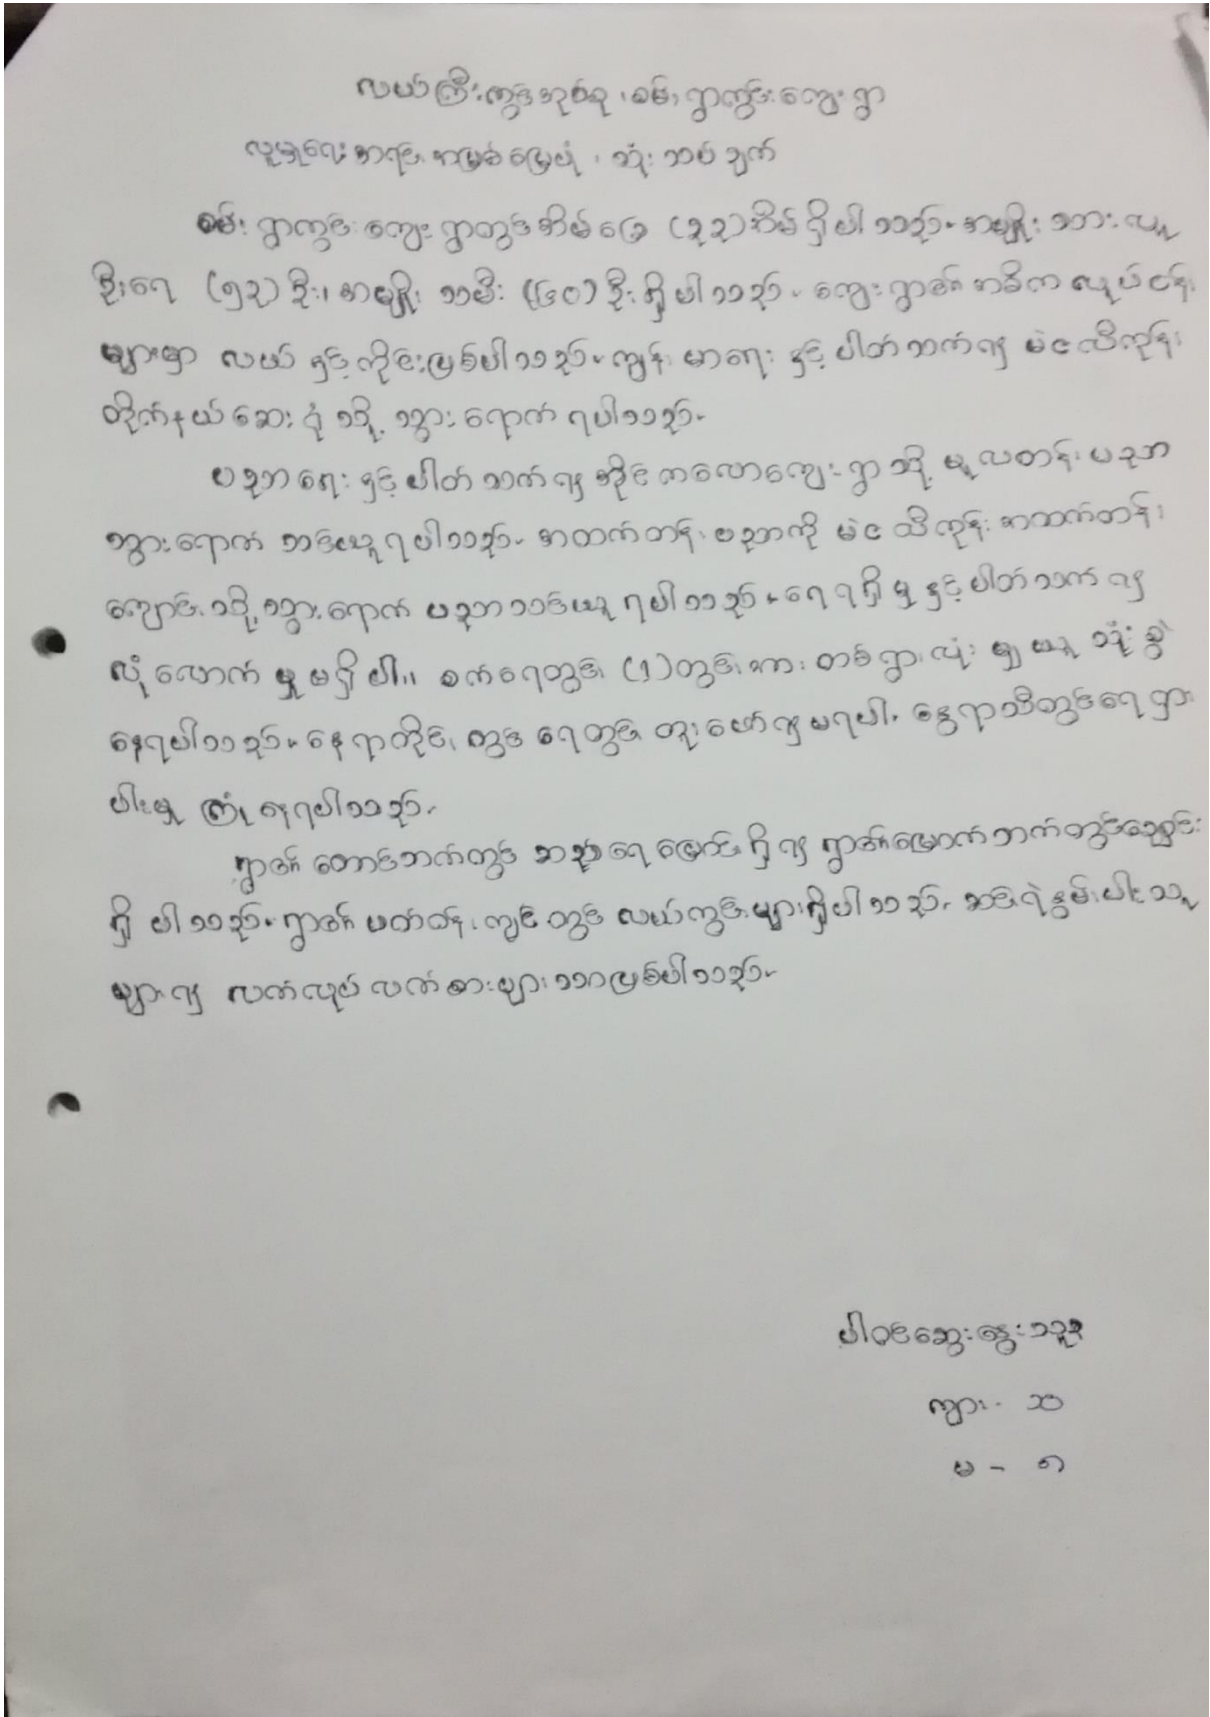 လယ်ကြီးကွင်းအုပ်စု၊ စမ်းရွာကွင်းကျေးရွာ
လူမှုရေးအရင်းအမြစ်မြေပုံ၊ သုံးသပ်ချက်
စမ်းရွာကွင်းကျေးရွာတွင်အိမ်ခြေ (၃၃) အိမ်ရှိပါသည်။ အမျိုးသားလူ
ဦးရေ (၅၃) ဦး၊ အမျိုးသမီး (၆၀) ဦးရှိပါသည်။ ကျေးရွာ၏ အဓိက လုပ်ငန်း
များမှာ လယ် နှင့် ကိုင်းဖြစ်ပါသည်။ ကျန်းမာရေး နှင့် ပါတ်သက်၍ မဲဇလီကုန်း
တိုက်နယ်ဆေးရုံ သို့ သွားရောက် ရပါသည်။
ပညာရေး နှင့် ပါတ်သက်၍ အိုင်ကလောကျေးရွာ သို့ မူလတန်းပညာ
သွားရောက် သင်ယူရပါသည်။ အထက်တန်းပညာကို မဲဇလီကုန်း အထက်တန်း
ကျောင်းသို့ သွားရောက် ပညာသင်ယူ ရပါသည်။ ရေရရှိမှု နှင့် ပါတ်သက်၍
လုံလောက်မှု မရှိပါ။ စက်ရေတွင်း (၁) တွင်းအား တစ်ရွာလုံး မျှယူ သုံးစွဲ
နေရပါသည်။ နေရာတိုင်းတွင် ရေတွင်း တူးဖော်၍မရပါ။ နွေရာသီတွင်ရေရှား
ပါးမှု ကြုံနေရပါသည်။
ရွာ၏ တောင်ဘက်တွင် ဆည်ရေမြောင်းရှိ၍ ရွာ၏မြောက်ဘက်တွင်ချောင်း
ရှိပါသည်။ ရွာ၏ပတ်ဝန်းကျင်တွင် လယ်ကွင်းများရှိပါသည်။ ဆင်းရဲနွမ်းပါးသူ
များ၍ လက်လုပ်လက်စားများသာဖြစ်ပါသည်။
ပါဝင်ဆွေးနွေးသူ
ကျား -
မ -